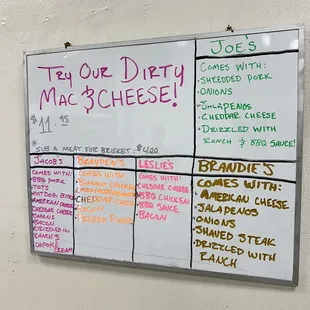 Try Our Dirty
Mac & Cheese!
$11.95
* Sub a meat for brisket $4.00
Joe's
Comes with:
• Shredded Pork
• Onions
• Jalapenos
• Cheddar Cheese
• Drizzled with
Ranch & BBQ Sauce!
Jacob's
Comes with:
BBQ Pork
Tots
American Cheese
Cheddar Cheese
Onions
Bacon
Drizzled in
Ranch &
Sour
Cream
Brayden's
Comes with
Buffalo Chicken
Cheddar Cheese
Bacon
Leslie's
Comes with:
Cheddar Cheese
BBQ Chicken
BBQ Sauce
Bacon
Brandie's
Comes with:
• American Cheese
• Jalapenos
• Onions
• Shaved Steak
• Drizzled with
Ranch